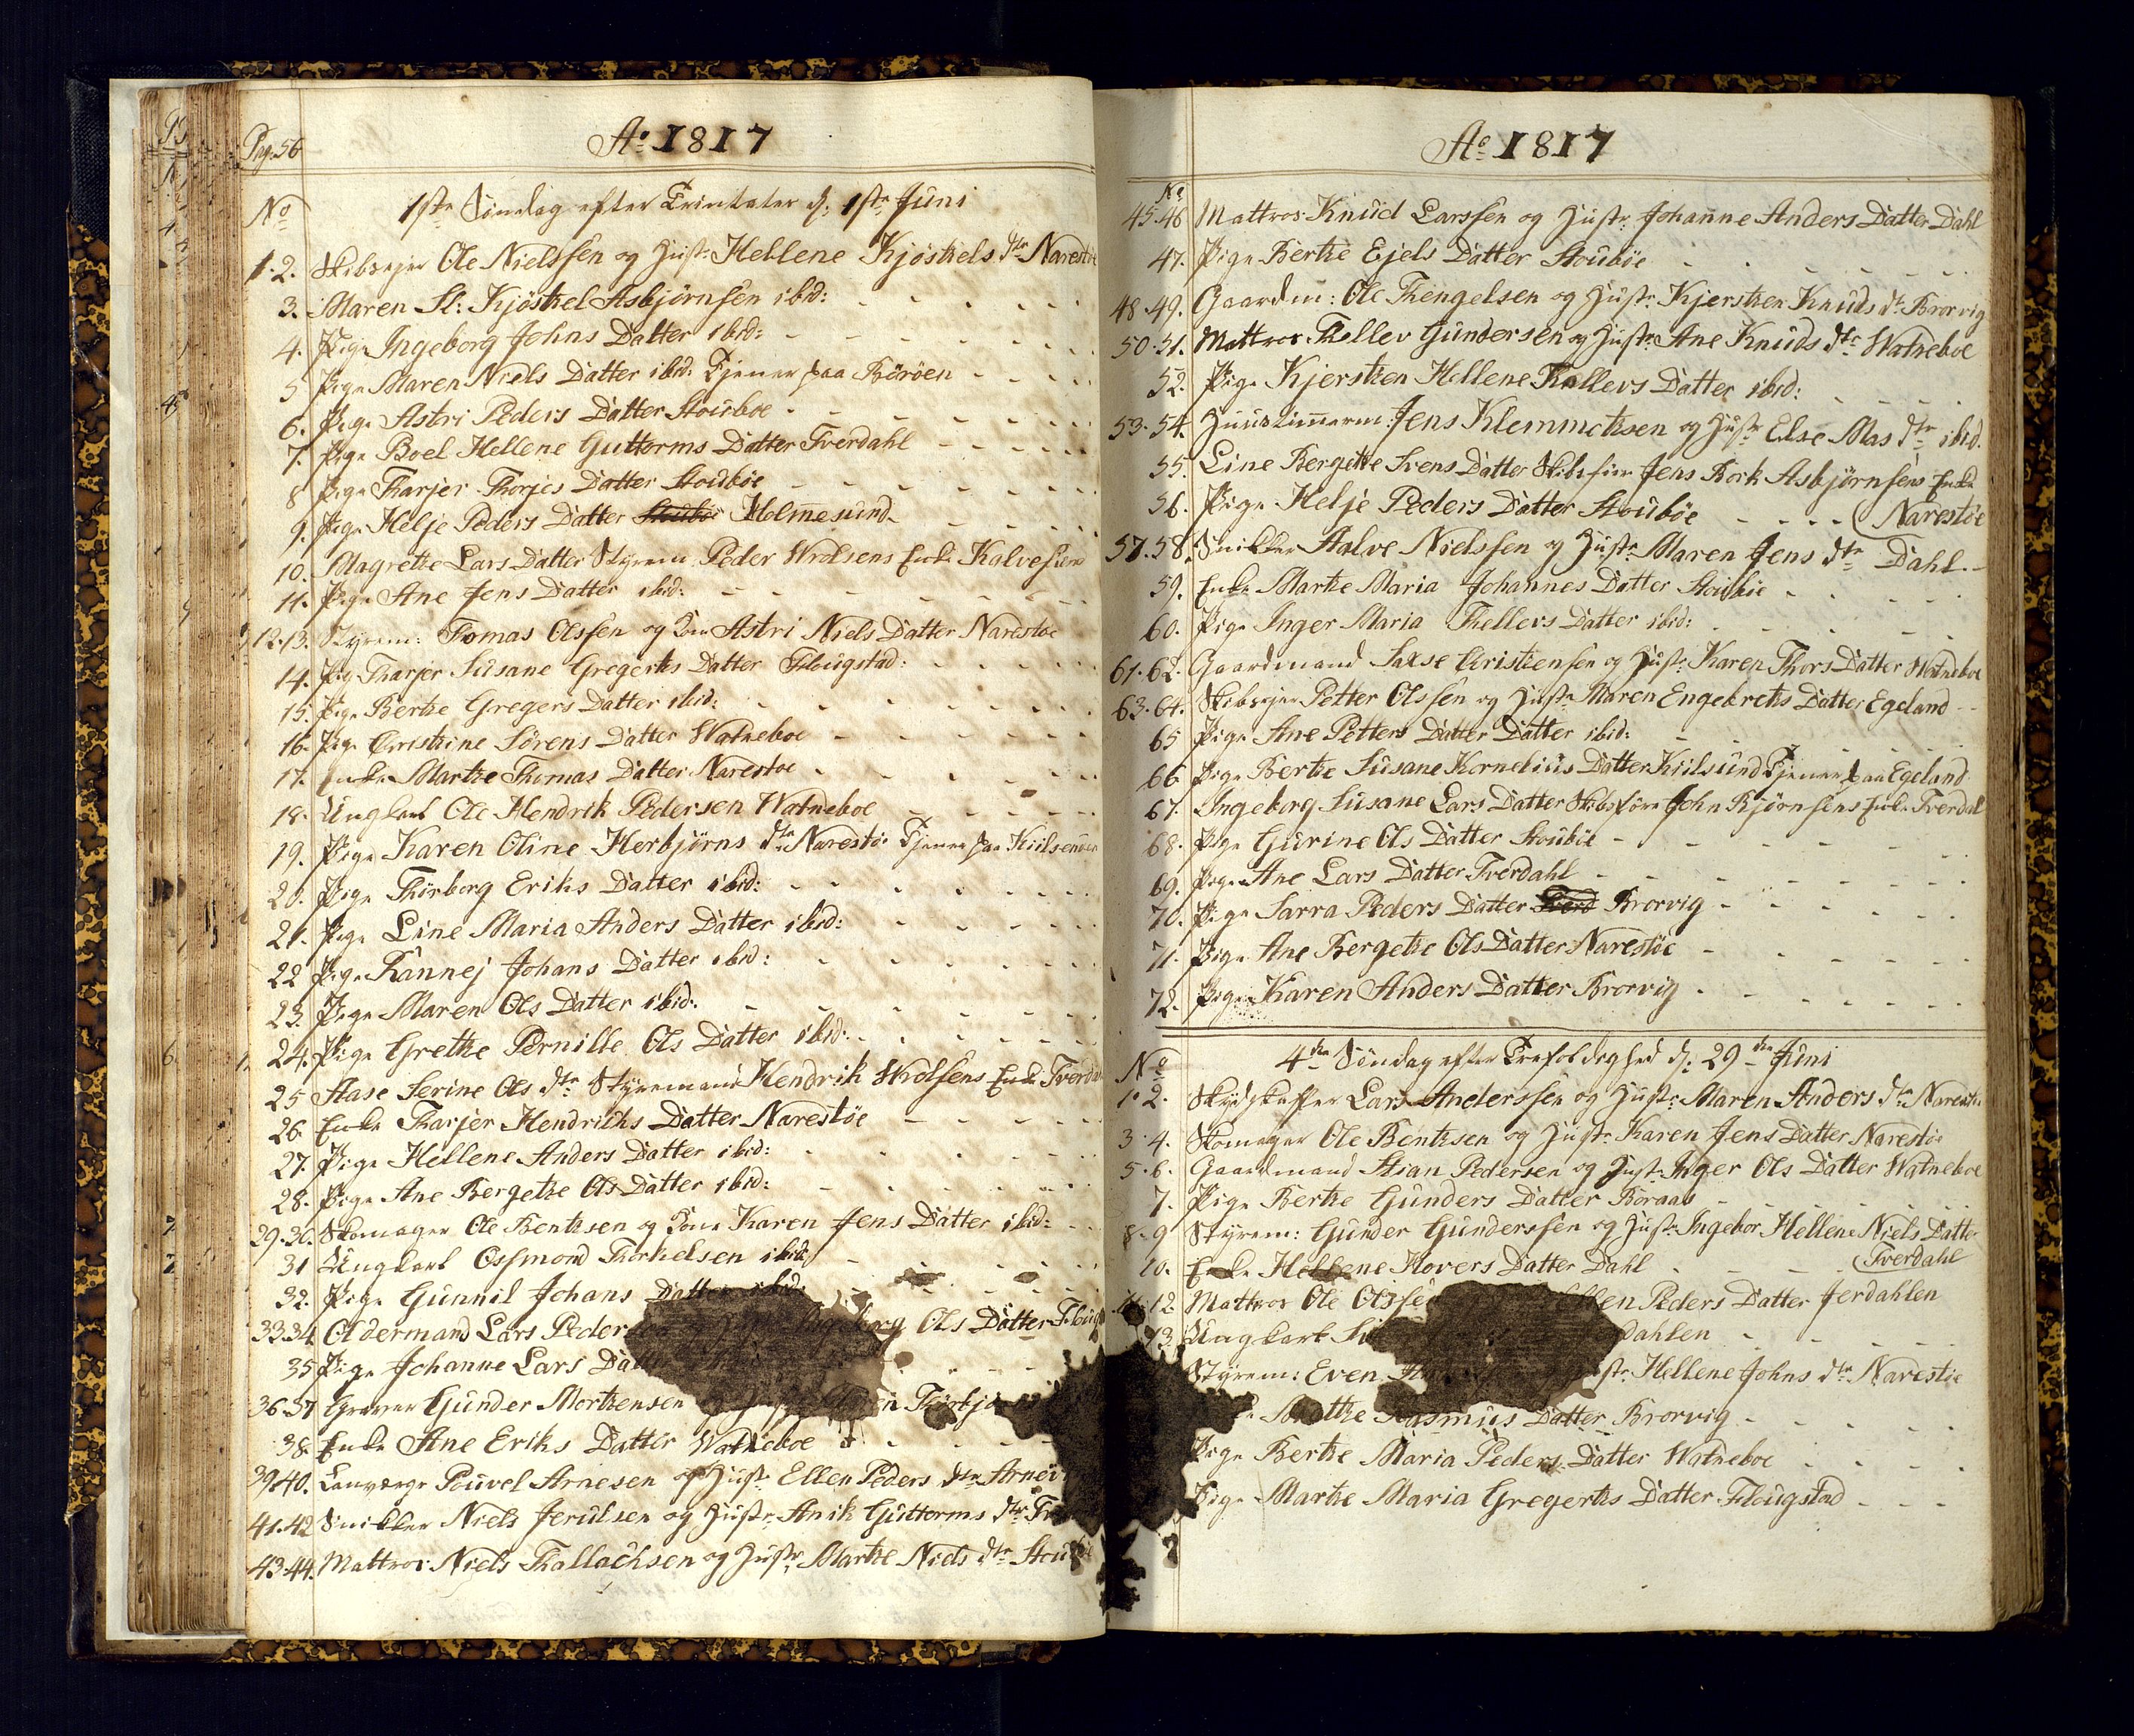 Pag. 56
Ao 1817
No
1ste Søndag efter Trinitatis d: 1ste Juni
1. 2. Skibsejer Ole Nielssen og Hustr: Hellene Kjøstels dtr Narestøe
3. Maren Sl: Kjøstel Asbjørnsen ibid:
4. Pige Ingeborg Johns Datter ibid:
5 Pige Maren Niels Datter ibid: Tjener paa Börøen
6. Pige Astri Peders Datter Stouboe
7. Pige Boel Hellene Guttorms Datter Tverdahl
8 Pige Tharjer Thorjes Datter Stouböe
9. Pige Helje Peders Datter Stouböe Holmesund
10. Magrette Lars Datter Styrem: Peder Wrolsens Enke Kalvesund
11. Pige Ane Jens Datter ibid:
12. 13. Styrem: Tomas Olssen og Kone Astri Niels Datter Narestøe
14. Pige Tharjer Susane Gregerts Datter Flougstad:
15. Pige Berthe Gregers Datter ibid:
16. Pige Christine Sörens Datter Watneboe
17. Enke Marthe Thomas Datter Narestoe
18. Ungkarl Ole Hendrik Pedersen Watneboe
19. Pige Karen Oline Herbjörns dtr Narestöe Tjener paa Kiilsund
20. Pige Thorborg Eriks Datter ibid:
21. Pige Line Maria Anders Datter ibid:
22 Pige Rannej Johans Datter ibid:
23. Pige Maren Ols Datter ibid:
24. Pige Grethe Pernille Ols Datter ibid:
25 Aase Serine Ols dtr Styremand Hendrik Wrolsens Enke Tverdal
26. Enke Tharjer Hendrichs Datter Narestöe
27. Pige Hellene Anders Datter ibid:
28. Pige Ane Bergethe Ols Datter ibid:
29. 30. Skomager Ole Bentsen og Kone Karen Jens Datter ibid:
31 Ungkarl Ossmond Thorkelsen ibid:
32. Pige Gunnil Johans Datter ibid:
33. 34. Oldermand Lars Pedersen Ingeborg Ols Datter Floug
35 Pige Johanne Lars Datter
36. 37 Graver Gunder Mortensen og Hustr
38. Enke Ane Eriks Datter Watneboe
39. 40. Lanværge Pouvel Arnesen og Hustr: Ellen Peders dtr Arnev
41. 42 Snikker Niels Jerulsen og Hustr: Anik Guttorms dtr
43. 44. Mattros Niels Thallachsen og Hustr: Marthe Niels dtr Stou
Ao 1817
No
45. 46 Mattros Knud Larssen og Hustr: Johanne Anders Datter Dahl
47. Pige Berthe Ejels Datter Stouböe
48. 49. Gaardm: Ole Thengelsen og Hustr: Kjersten Knuds dtr Brorvig
50. 51. Mattros Thellev Gundersen og Hustr: Ane Knuds dtr Watneboe
52. Pige Kjersten Hellene Thellevs Datter ibid:
53. 54. Huustimerm: Jens Klemmetsen og Hustr: Else Mas dtr ibid.
55. Line Bergethe Svens Datter Skibsfører Jens Bork Asbjörnsens Enke
56. Pige Helje Peders Datter Stouböe (Narestöe
57. 58. Snikker Aalve Nielssen og Hustr: Maren Jens dtr Dahl.
59. Enke Marthe Maria Johannes Datter Stouböe
60. Pige Inger Maria Thellevs Datter ibid:
61. 62. Gaardmand Saxse Christensen og Hustr: Karen Thors Datter Watneboe
63. 64. Skibsejer Petter Olssen og Hustr: Maren Engebrets Datter Egeland
65 Pige Ane Petters Datter Datter ibid:
66 Pige Berthe Susane Kornelius Datter Kiilsund Tjener paa Egeland
67. Ingeborg Susane Lars Datter Skibsfører John Bjørnsens Enke Tverdal
68. Pige Gurine Ols Datter Stouböe
69. Pige Ane Lars Datter Tverdahl
70. Pige Sarra Peders Datter Tverd Brorvig
71. Pige Ane Bergethe Ols Datter Narestöe
72. Pige Karen Anders Datter Brorvig
No
4de Søndag efter Trefoldighed d: 29de Juni
1. 2. Skydskaffer Lars Anderssen og Hustr: Maren Anders dtr Narestøe
3. 4. Skomager Ole Bentsen og Hustr: Karen Jens Datter Narestöe
5. 6. Gaardmand Stian Pedersen og Hustr: Inger Ols Datter Watneboe
7. Pige Berthe Gunders Datter Boraas
8. 9 Styrem: Gunder Gunderssen og Hustr: Ingebor Hellene Niels Datter
10. Enke Hellene Hovers Datter Dahl (Tverdahl
11. 12 Mattros Ole Olssen Ellen Peders Datter Jerdahlen
13. Ungkarl dahlen
Styrem: Even Hustr: Hellene Johns dtr Narestöe
Rasmus Datter Brorvig
Pige Berthe Maria Peders Datter Watneboe
Pige Marthe Maria Gregerts Datter Flougstad